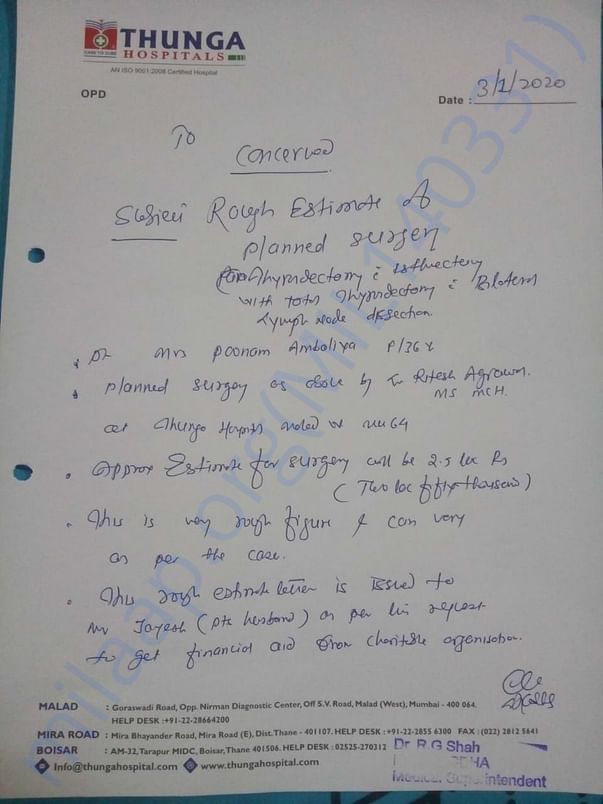 THUNGA
HOSPITALS
CARE TO CURE
AN ISO 9001:2008 Certified Hospital
OPD
Date : 3/1/2020
To
Concerned
Rough Estimate of
planned surgery
with Total Thyroidectomy c Bilateral
Lymph Node dissection.
Mrs Poonam Ambaliya F/36 Y
planned surgery as above by Dr Ritesh Agrawal.
MS MCH.
at Thunga Hospital malad w 64
Approx Estimate for surgery will be 2.5 lac Rs
(Two lac fifty thousand)
This is very rough figure & can vary
as per the case.
This rough estimate letter is issued to
Mr Jayesh (pts husband) as per his request
to get financial aid from charitable organisation.
MALAD : Goraswadi Road, Opp. Nirman Diagnostic Center, Off S.V. Road, Malad (West), Mumbai - 400 064.
HELP DESK :+91-22-28664200
MIRA ROAD : Mira Bhayander Road, Mira Road (E), Dist. Thane - 401107. HELP DESK : +91-22-2855 6300 FAX : (022) 2812 5641
BOISAR : AM-32, Tarapur MIDC, Boisar, Thane 401506. HELP DESK : 02525-270312
Info@thungahospital.com www.thungahospital.com
Dr. R G Shah
Medical Superintendent
milaap.org(MIL140331)